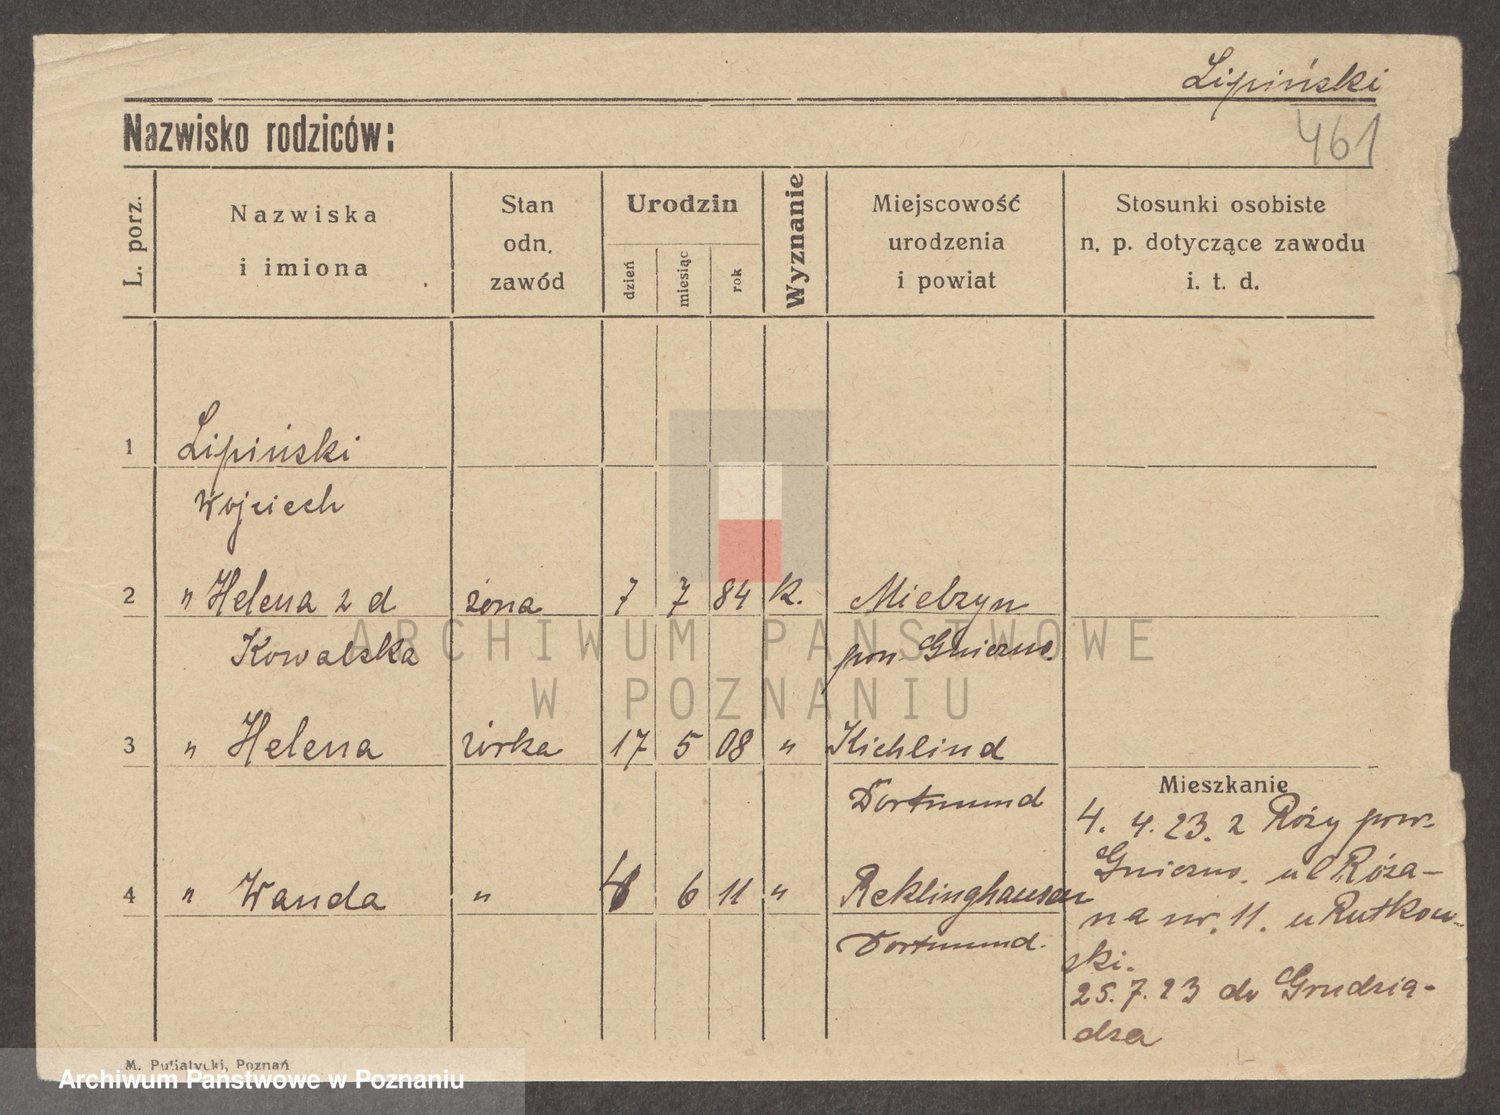 Lipiński
Nazwisko rodziców:
461
L. porz.
Nazwiska
i imiona
Stan
odn.
zawód
Urodzin
dzień
miesiąc
rok
Wyznanie
Miejscowość
urodzenia
i powiat
Stosunki osobiste
n. p. dotyczące zawodu
i. t. d.
1 Lipiński
Wojciech
2 " Helena z d żona 7 7 84 k. Mielzyn
Kowalska pow. Gniezno.
3 " Helena córka 17 5 08 " Kichlind
Dortmund
Mieszkanie
4. 4. 23. z Róży pow.
Gniezno. ul Róża-
4 " Wanda " 6 11 " Reklinghausen
na nr. 11. u Rutkow-
Dortmund.
ski.
25. 7. 23 do Grudzią-
dza
ARCHIWUM PAŃSTWOWE
W POZNANIU
M. Putiatycki, Poznań
Archiwum Państwowe w Poznaniu